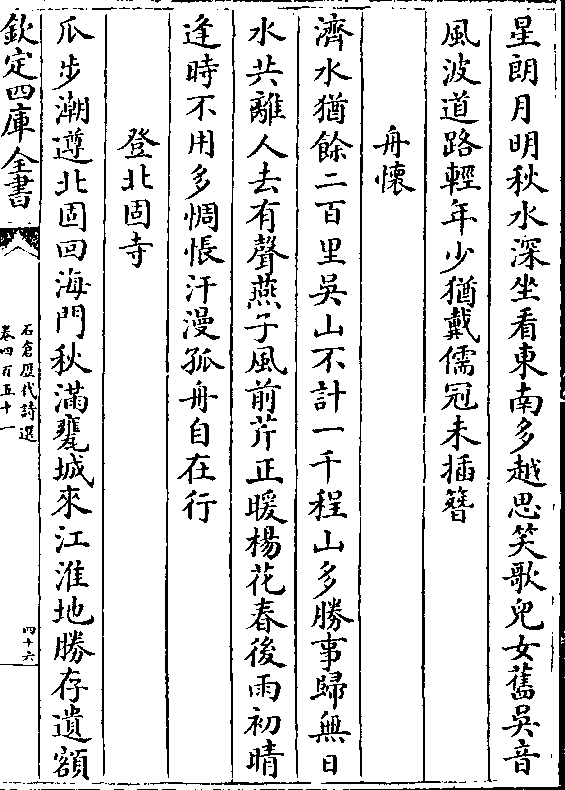 星朗月明秋水深坐看東南多越思笑歌兒女舊吳音
風波道路輕年少猶戴儒冠未插簪
舟懷
濟水猶餘二百里吳山不計一千程山多勝事歸無日
水共離人去有聲燕子風前芹正暖楊花春後雨初晴
逢時不用多惆悵汗漫孤舟自在行
登北固寺
瓜步潮遵北固回海門秋滿甕城來江淮地勝存遺額
欽定四庫全書
石倉歷代詩選
卷四百五十一
四十六